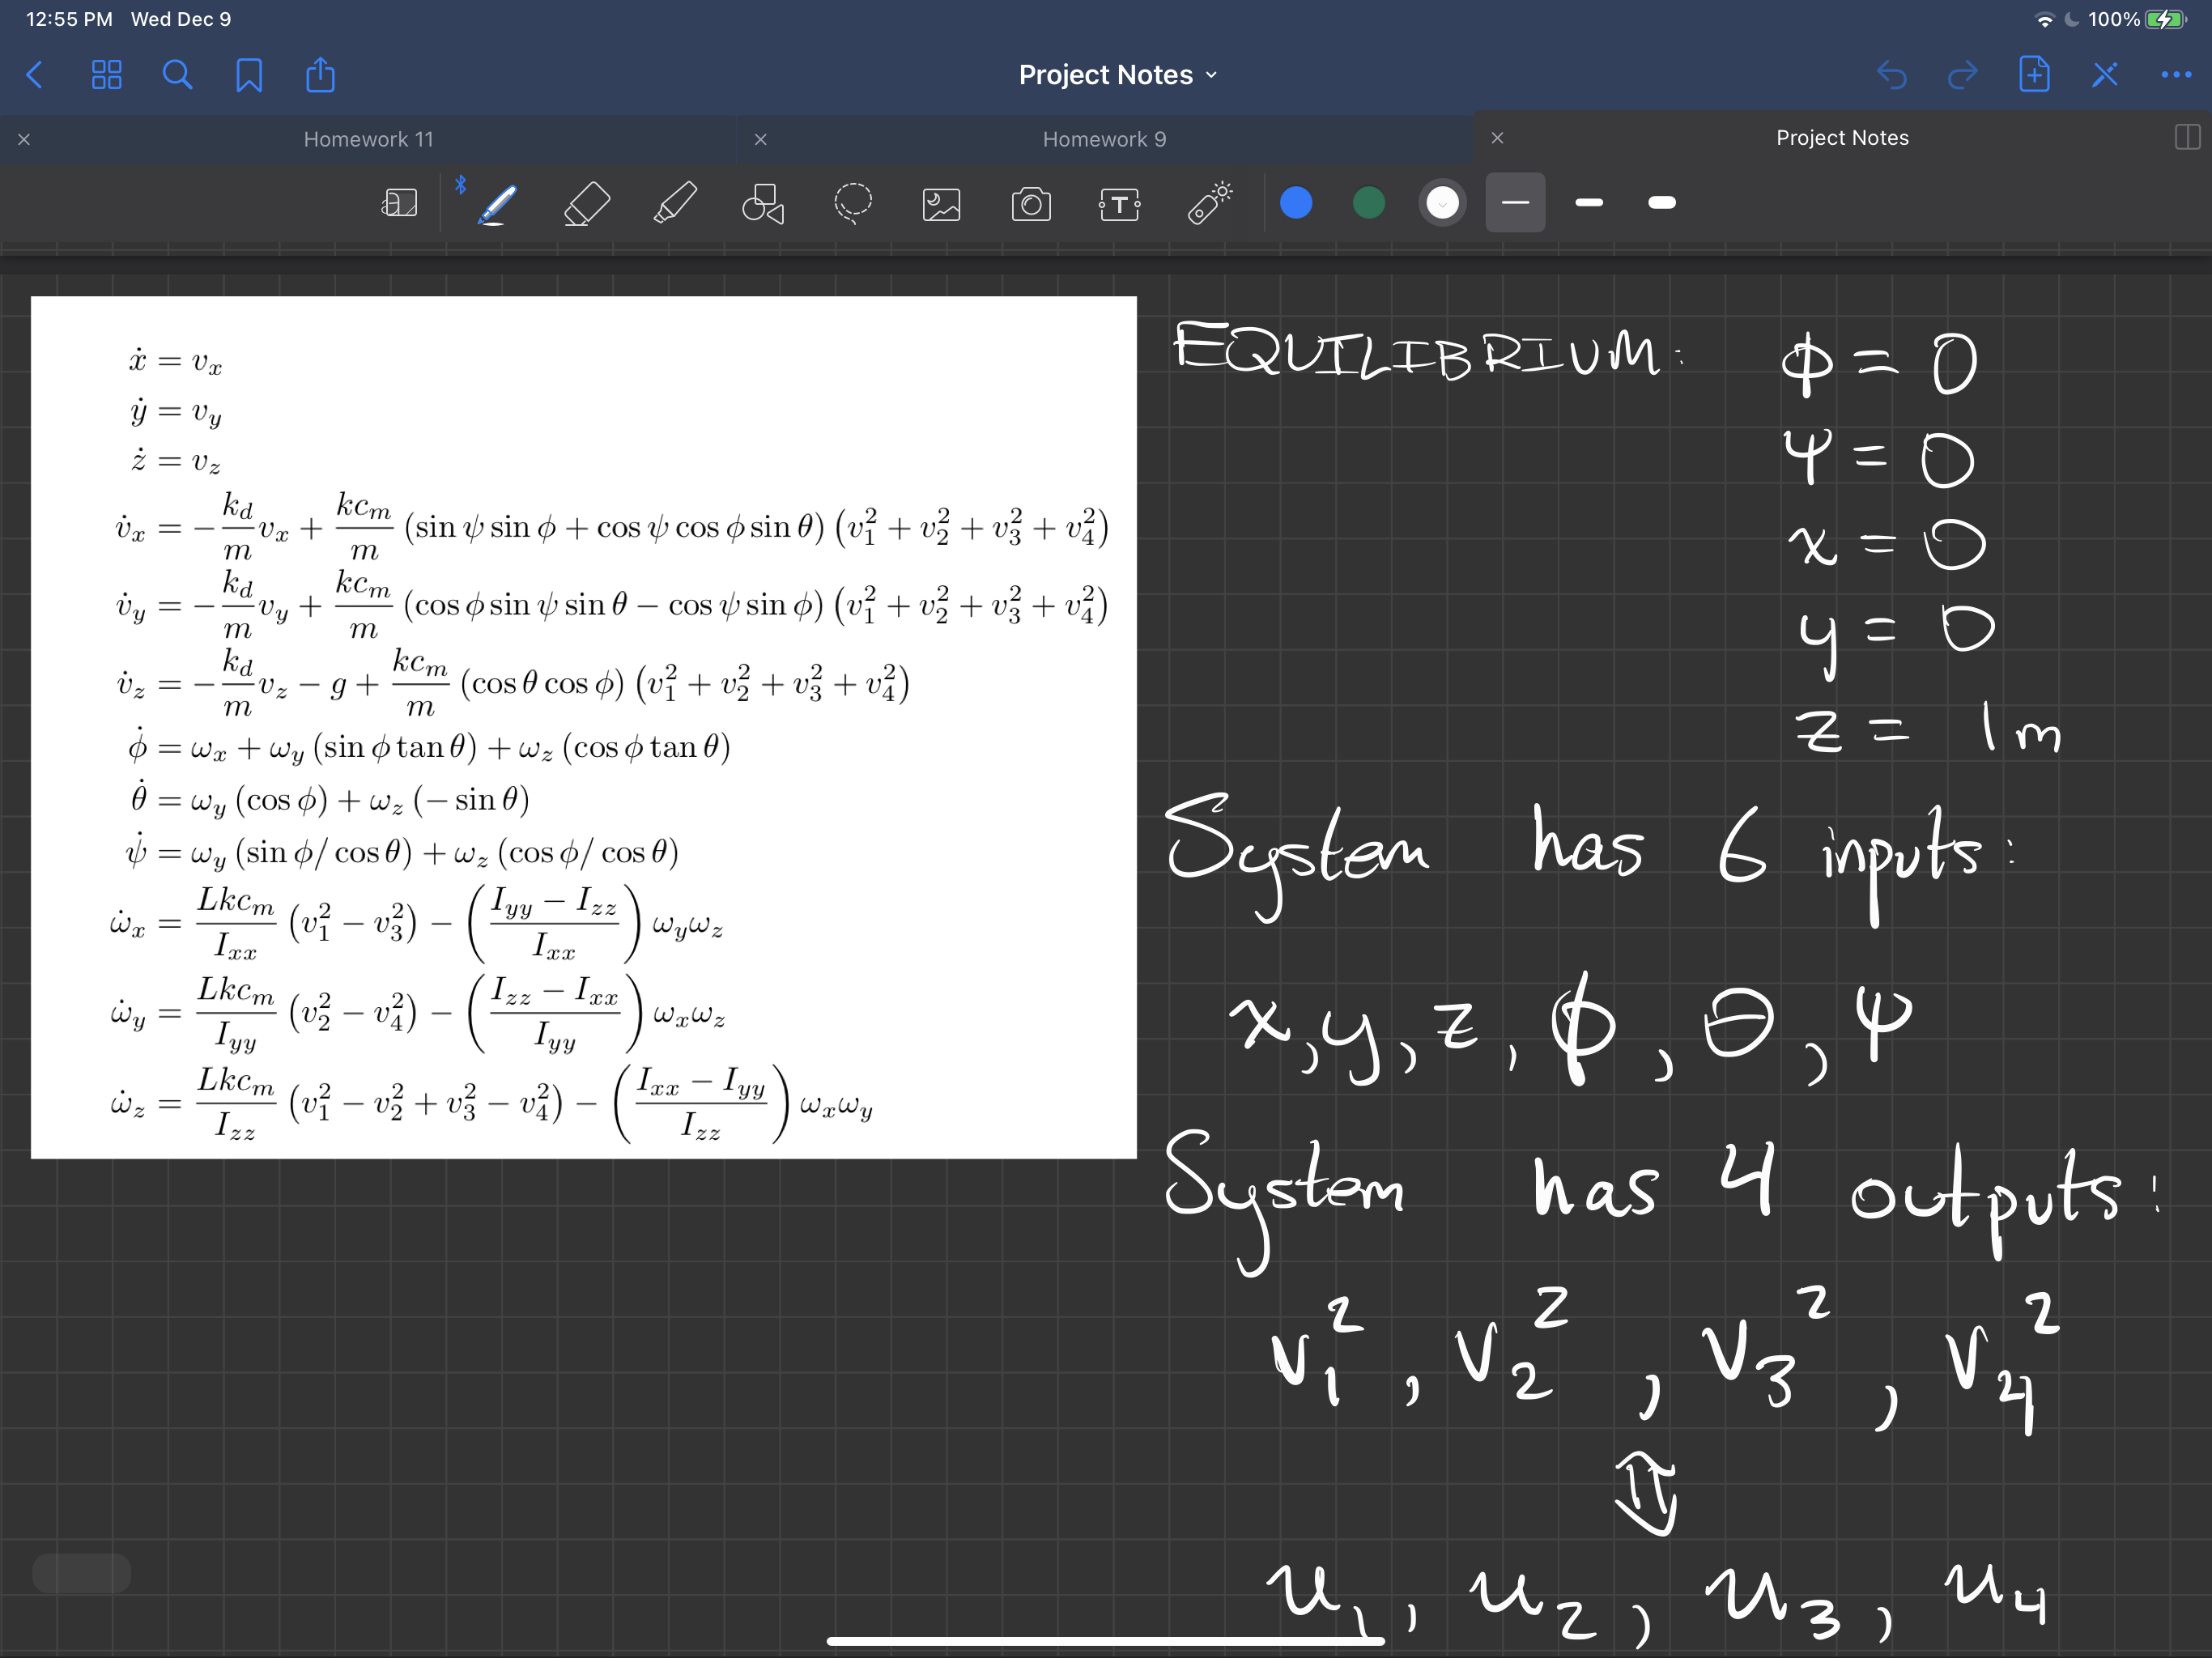 12:55 PM Wed Dec 9
100%
Project Notes
Homework 11
Homework 9
Project Notes
T
ẋ = v_x
ẏ = v_y
ż = v_z
v̇_x = −(k_d/m) v_x + (kc_m/m) (sin ψ sin ϕ + cos ψ cos ϕ sin θ) (v_1^2 + v_2^2 + v_3^2 + v_4^2)
v̇_y = −(k_d/m) v_y + (kc_m/m) (cos ϕ sin ψ sin θ − cos ψ sin ϕ) (v_1^2 + v_2^2 + v_3^2 + v_4^2)
v̇_z = −(k_d/m) v_z − g + (kc_m/m) (cos θ cos ϕ) (v_1^2 + v_2^2 + v_3^2 + v_4^2)
ϕ̇ = ω_x + ω_y (sin ϕ tan θ) + ω_z (cos ϕ tan θ)
θ̇ = ω_y (cos ϕ) + ω_z (− sin θ)
ψ̇ = ω_y (sin ϕ/ cos θ) + ω_z (cos ϕ/ cos θ)
ω̇_x = (Lkc_m/I_xx) (v_1^2 − v_3^2) − ((I_yy − I_zz)/I_xx) ω_y ω_z
ω̇_y = (Lkc_m/I_yy) (v_2^2 − v_4^2) − ((I_zz − I_xx)/I_yy) ω_x ω_z
ω̇_z = (Lkc_m/I_zz) (v_1^2 − v_2^2 + v_3^2 − v_4^2) − ((I_xx − I_yy)/I_zz) ω_x ω_y
EQUILIBRIUM: ϕ = 0
ψ = 0
x = 0
y = 0
z = 1m
System has 6 inputs:
x, y, z, ϕ, θ, ψ
System has 4 outputs:
v_1^2, v_2^2, v_3^2, v_4^2
⇕
u_1, u_2, u_3, u_4